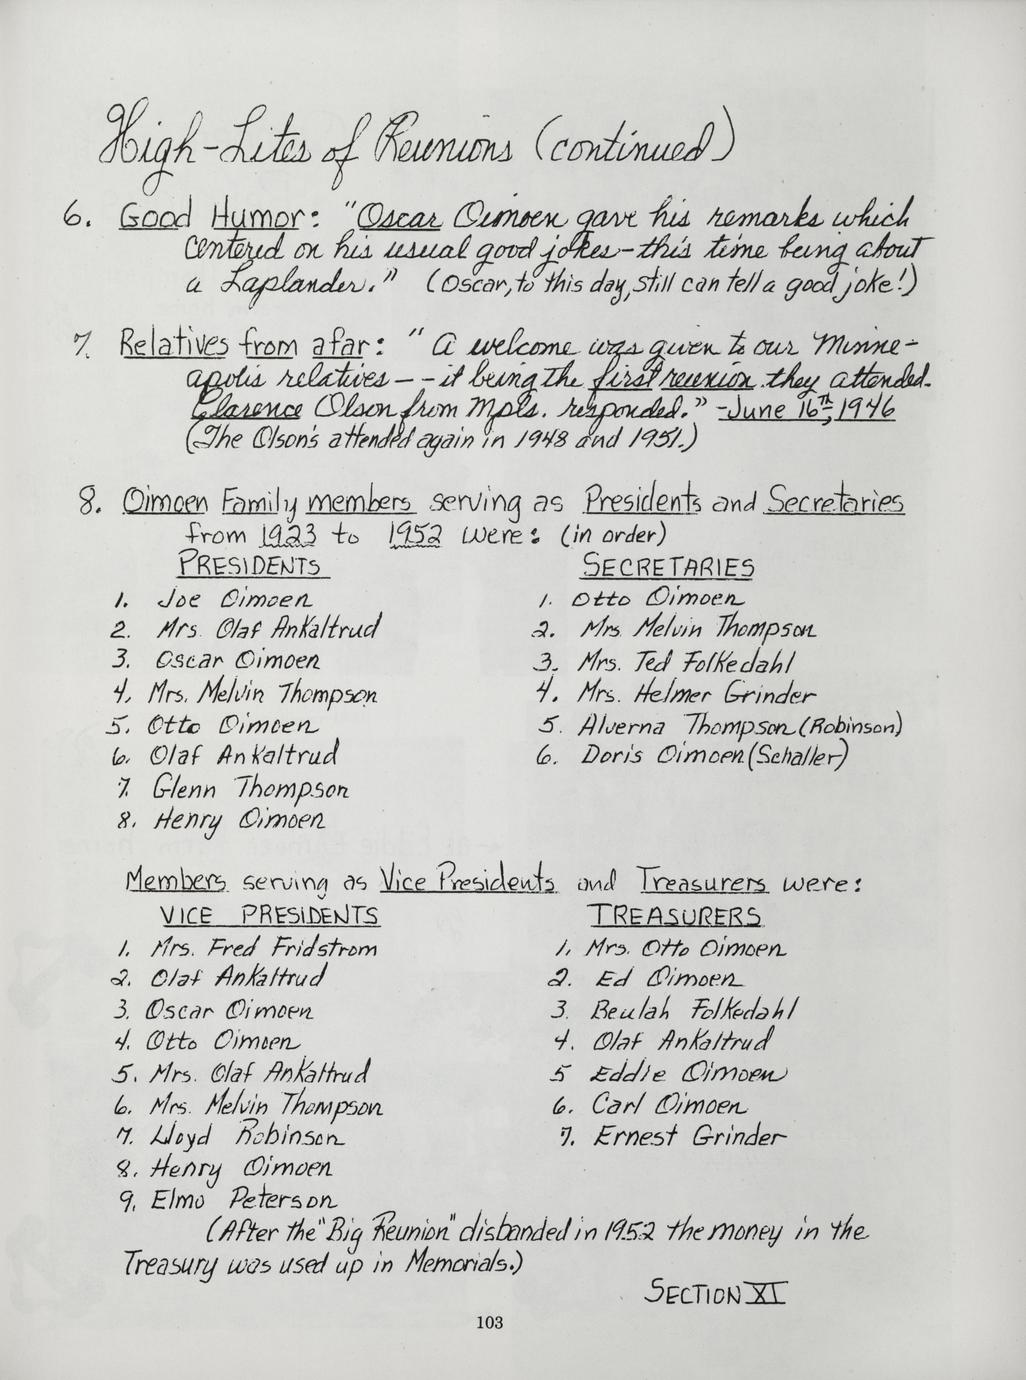 High-Lites of Reunions (continued)
6. Good Humor: "Oscar Oimoen gave his remarks which
centered on his usual good jokes-this time being about
a Laplander." (Oscar, to this day, still can tell a good joke!)
7. Relatives from afar: "A welcome was given to our Minne-
apolis relatives--it being the first reunion they attended.
Clarence Olson from Mpls. responded." -June 16th, 1946
(The Olson's attended again in 1948 and 1951.)
8. Oimoen Family members serving as Presidents and Secretaries
from 1923 to 1952 were: (in order)
PRESIDENTS
1. Joe Oimoen
2. Mrs. Olaf Ankaltrud
3. Oscar Oimoen
4. Mrs. Melvin Thompson
5. Otto Oimoen
6. Olaf Ankaltrud
7. Glenn Thompson
8. Henry Oimoen
SECRETARIES
1. Otto Oimoen
2. Mrs. Melvin Thompson
3. Mrs. Ted Folkedahl
4. Mrs. Helmer Grinder
5. Alverna Thompson (Robinson)
6. Doris Oimoen (Schaller)
Members serving as Vice Presidents and Treasurers were:
VICE PRESIDENTS
1. Mrs. Fred Fridstrom
2. Olaf Ankaltrud
3. Oscar Oimoen
4. Otto Oimoen
5. Mrs. Olaf Ankaltrud
6. Mrs. Melvin Thompson
7. Lloyd Robinson
8. Henry Oimoen
9. Elmo Peterson
TREASURERS
1. Mrs. Otto Oimoen
2. Ed Oimoen
3. Beulah Folkedahl
4. Olaf Ankaltrud
5 Eddie Oimoen
6. Carl Oimoen
7. Ernest Grinder
(After the "Big Reunion" disbanded in 1952 the money in the
Treasury was used up in Memorials.)
SECTION XI
103